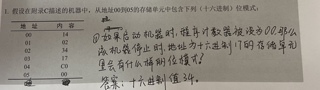 1. 假设在附录C描述的机器中，从地址00到05的存储单元中包含下列（十六进制）位模式：
地址 内容
00 14
01 02
02 34
03 17
04 C0
05 00
如果启动机器时，程序计数器被设为00，那么
机器停止时，地址为十六进制17的存储单元
里会有什么样的位模式？
答案：十六进制值34。